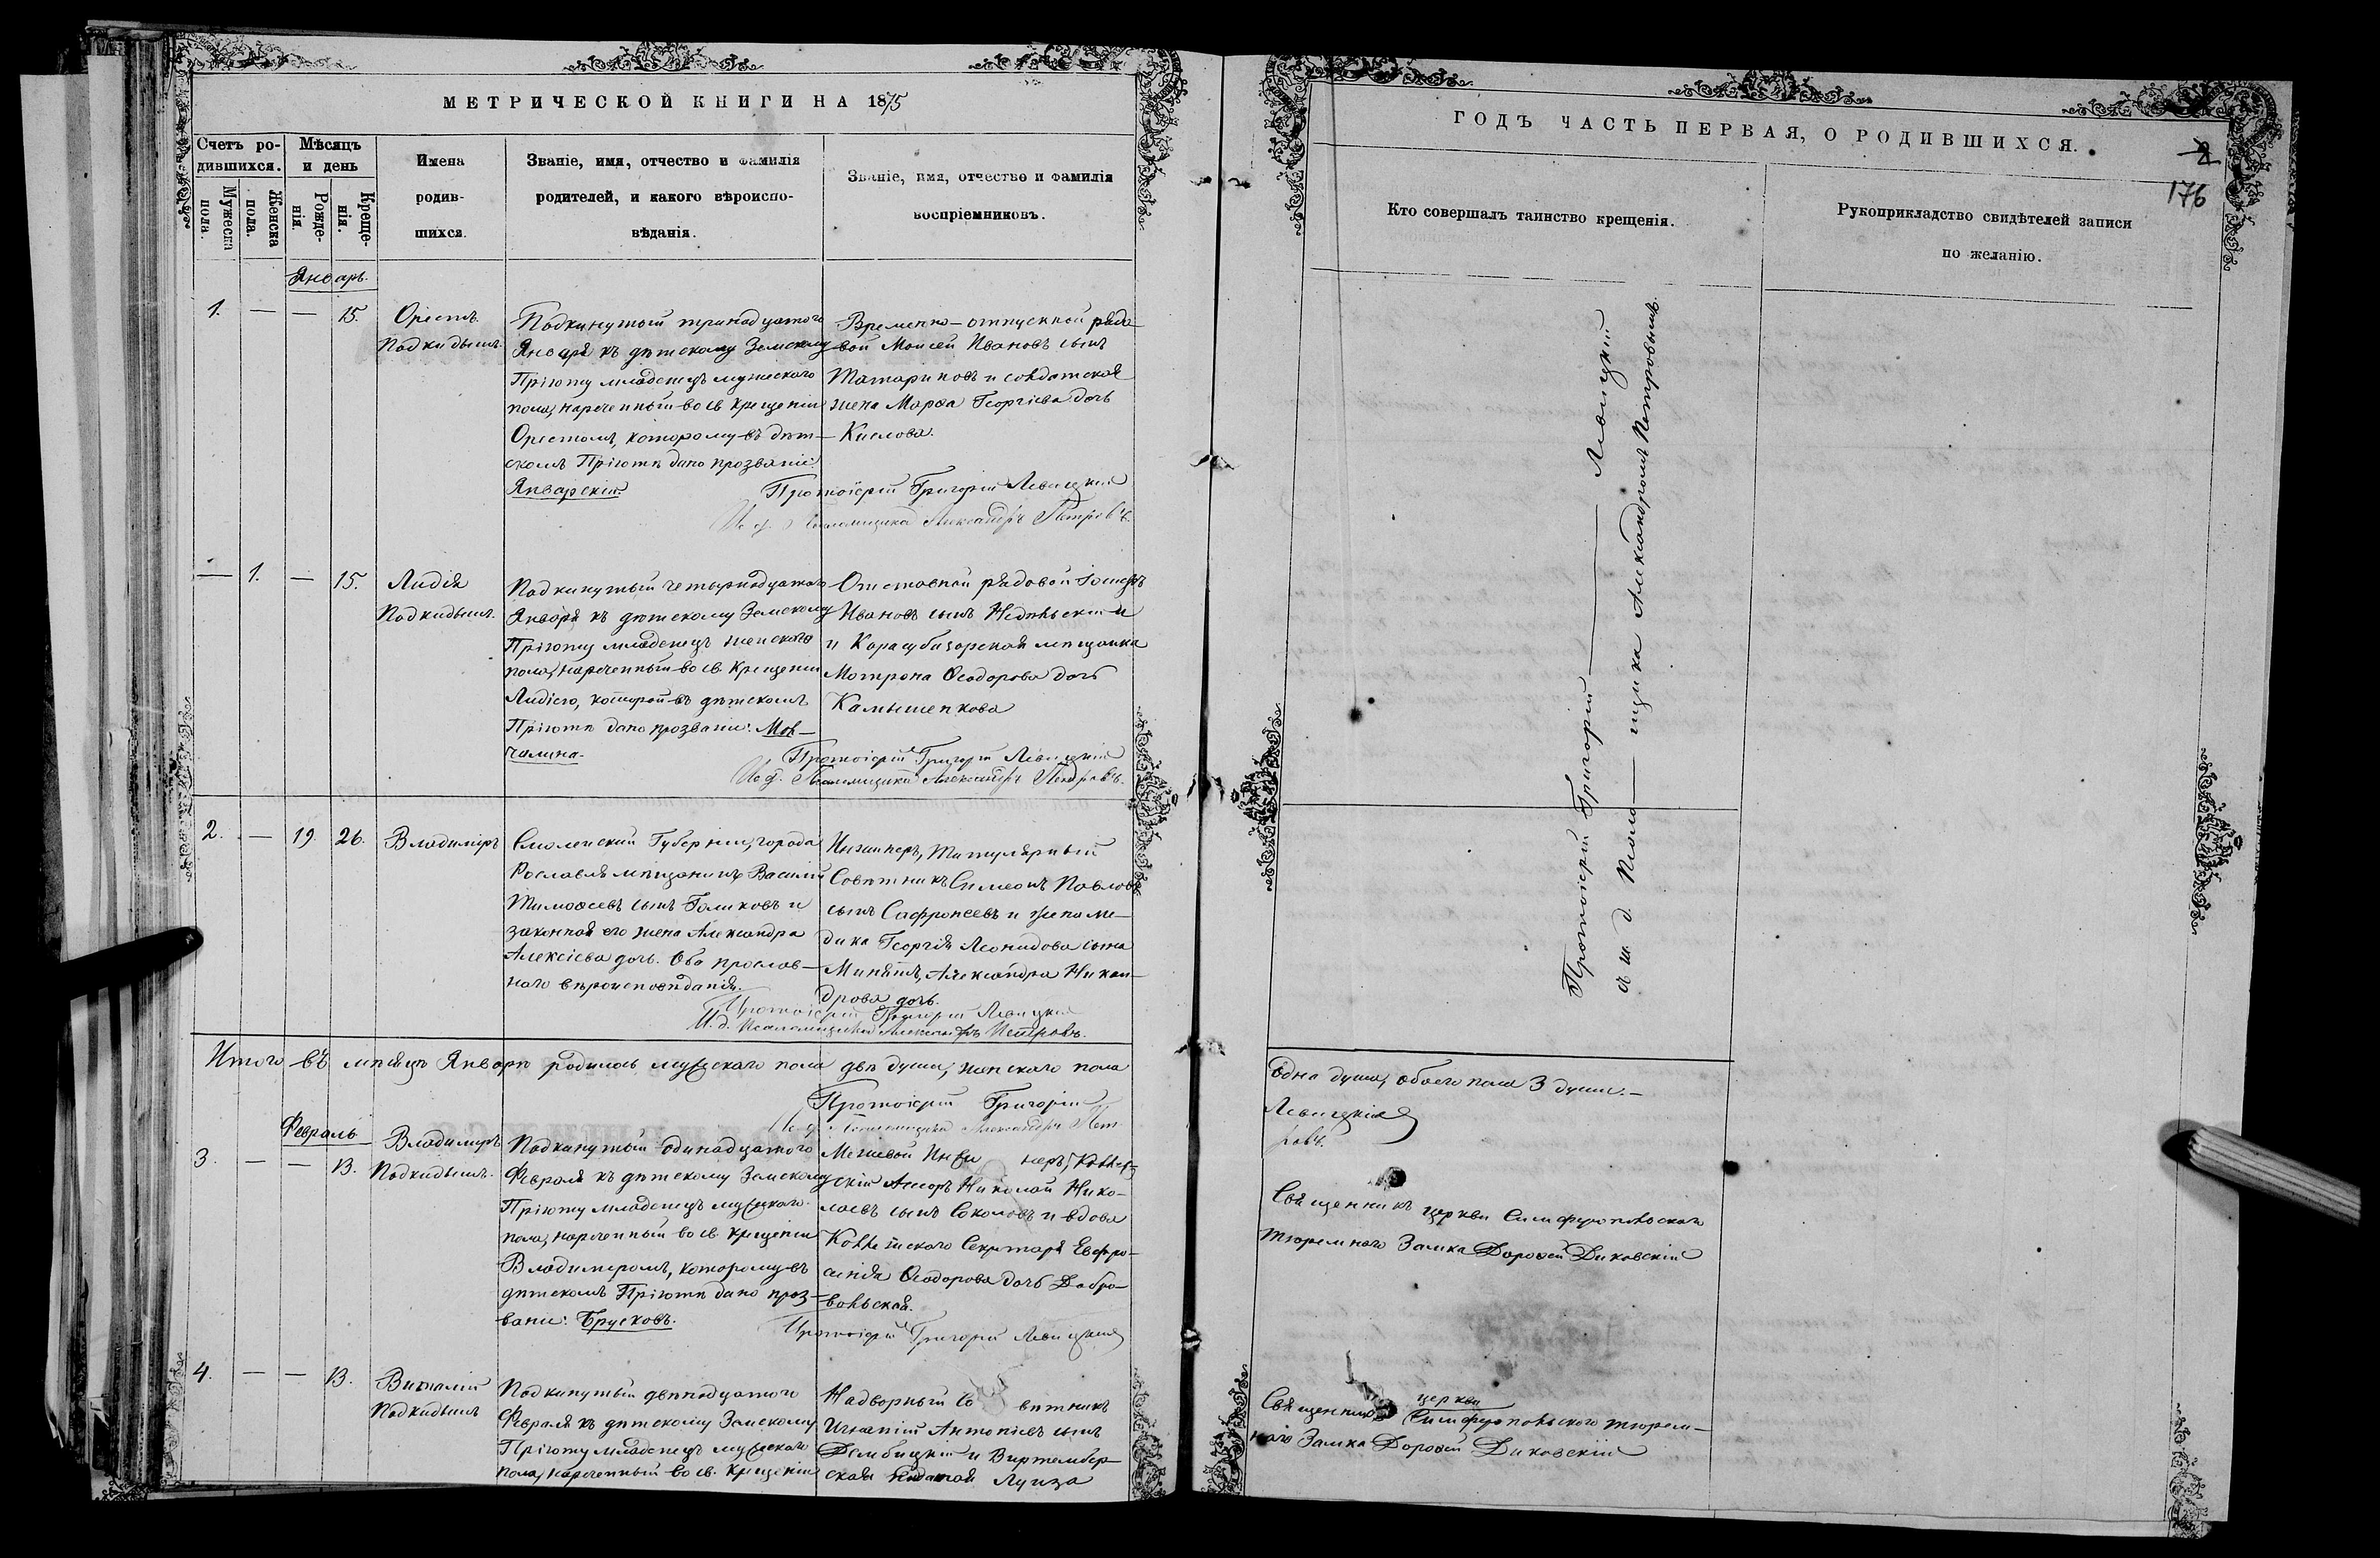 МЕТРИЧЕСКОЙ КНИГИ НА 1875
Счетъ ро-
дившихся.
Мужеска
пола.
Женска
пола.
Мѣсяцъ
и день
Рожде-
нія.
Креще-
нія.
Имена
родив-
шихся.
Званіе, имя, отчество и фамилія
родителей, и какого вѣроиспо-
вѣданія.
Званіе, имя, отчество и фамилія
воспріемниковъ.
Январь.
1. — — 15.
Орестъ
Подкидышъ.
Подкинутый тринадцатого
Января къ дѣтскому Земскому
Пріюту младенецъ мужескаго
пола, нареченный во св. Крещеніи
Орестомъ, которому въ дѣт-
скомъ Пріютѣ дано прозваніе:
Январскій.
Временно-отпускной рядо-
вой Моисей Ивановъ сынъ
Татариновъ и солдатская
жена Марѳа Георгіева дочь
Кислова.
Протоіерей Григорій Левицкій
И. д. Псаломщика Александръ Петровъ.
— 1. — 15.
Лидія
Подкидышъ.
Подкинутый четырнадцатого
Января къ дѣтскому Земскому
Пріюту младенецъ женскаго
пола, нареченный во св. Крещеніи
Лидіею, которой въ дѣтскомъ
Пріютѣ дано прозваніе: Мол-
чалина.
Отставной рядовой Іосифъ
Ивановъ сынъ Недѣльскій
и Карасубазарская мѣщанка
Матрона Ѳеодорова дочь
Камышенкова
Протоіерей Григорій Левицкій
И. д. Псаломщика Александръ Петровъ.
2. — 19. 26.
Владиміръ
Смоленской Губерніи, города
Рославля мѣщанинъ Василій
Тимоѳеевъ сынъ Голиковъ и
законная его жена Александра
Алексіева дочь. Оба православ-
наго вѣроисповѣданія.
Инженеръ, Титулярный
Совѣтникъ Симеонъ Павловъ
сынъ Сафронеевъ и жена ме-
дика Георгія Леонидова сына
Александра Никан-
дрова дочь.
Протоіерей Григорій Левицкій
И. д. Псаломщика Александръ Петровъ.
Итого въ мѣсяцѣ Январѣ родилось мужескаго пола двѣ души, женскаго пола
Протоіерей Григорій
И. д. Псаломщика Александръ Пет-
Февраль
3. — — 13.
Владиміръ
Подкидышъ.
Подкинутый одинадцатого
Февраля къ дѣтскому Земскому
Пріюту младенецъ мужескаго
пола, нареченный во св. Крещеніи
Владиміромъ, которому въ
дѣтскомъ Пріютѣ дано проз-
ваніе: Брусковъ.
Межевой Инженеръ, Коллеж-
скій Ассоръ Николай Нико-
лаевъ сынъ Соколовъ и вдова
Коллежскаго Секретаря Евфро-
синія Ѳеодорова дочь Добро-
вольская.
Протоіерей Григорій Левицкій
4. — — 13.
Виталій
Подкидышъ
Подкинутый двѣнадцатого
Февраля къ дѣтскому Земскому
Пріюту младенецъ мужескаго
пола, нареченный во св. Крещеніи
Надворный Совѣтникъ
Игнатій Антоніевъ сынъ
Дембицкій и Виртембер-
ская Луиза
ГОДЪ ЧАСТЬ ПЕРВАЯ, О РОДИВШИХСЯ.
2
176
Кто совершалъ таинство крещенія.
Рукоприкладство свидѣтелей записи
по желанію.
Протоіерей Григорій — Левицкій
съ и. д. Псало — мщика Александромъ Петровымъ.
одна душа, обоего пола 3 души.—
Левицкій
ровъ.
Священникъ церкви Симферопольскаго
тюремнаго Замка Дороѳей Диковскій
церкви
Священникъ Симферопольскаго тюрем-
наго Замка Дороѳей Диковскій